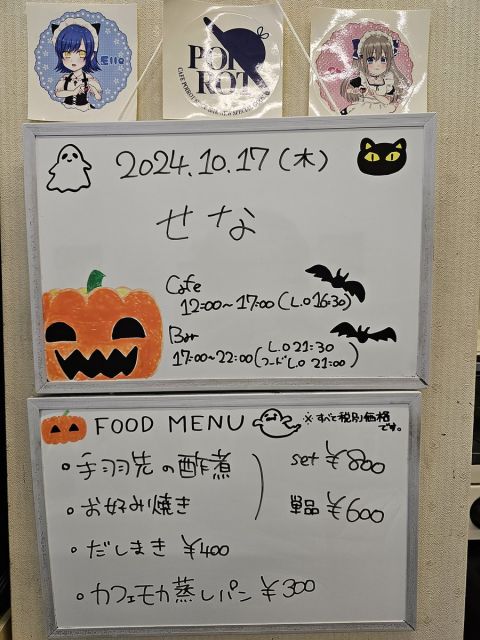 Ello
POI
ROT
2024.10.17(木)
せな
Cafe
12:00~17:00(L.O 16:30)
Bar
17:00~22:00(L.O 21:30
フードL.O 21:00)
FOOD MENU ※すべて税別価格
です。
・手羽先の酢煮 set ¥800
・お好み焼き 単品 ¥600
・だしまき ¥400
・カフェモカ蒸しパン ¥300